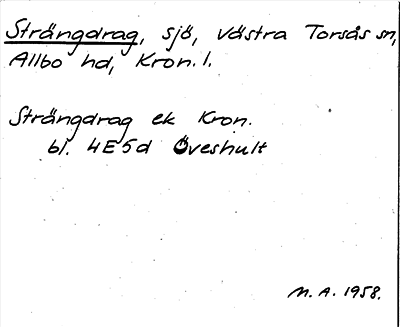 Strängdrag, sjö, västra Torsås sn,
Allbo hd, Kron. l.
Strängdrag ek Kron.
bl. 4E5d Öveshult
M. A. 1958.